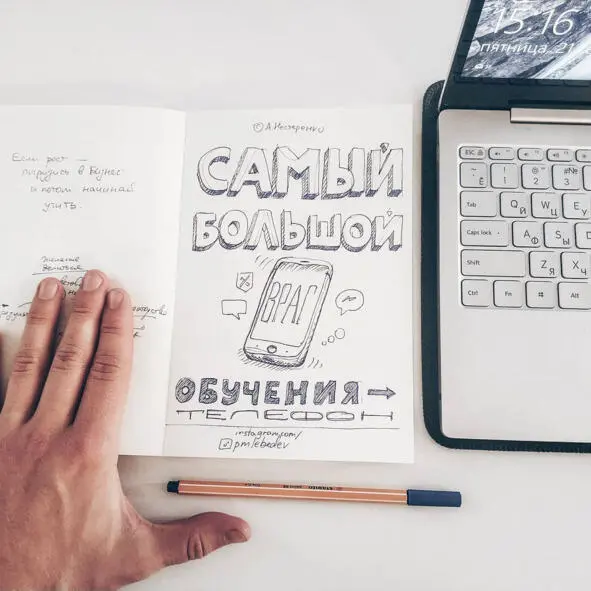 15:16
пятница, 21
© А. Нестеренко
САМЫЙ
БОЛЬШОЙ
ВРАГ
ОБУЧЕНИЯ →
ТЕЛЕФОН
instagram.com/
pmlebedev
Если рост —
погрузись в бизнес
и потом начинай
учить.
Esc
~ Ё
! 1
@ " 2
# № 3
Tab
Q Й
W Ц
E У
Caps lock
A Ф
S Ы
D
Shift
Z Я
X Ч
Ctrl
Fn
Alt